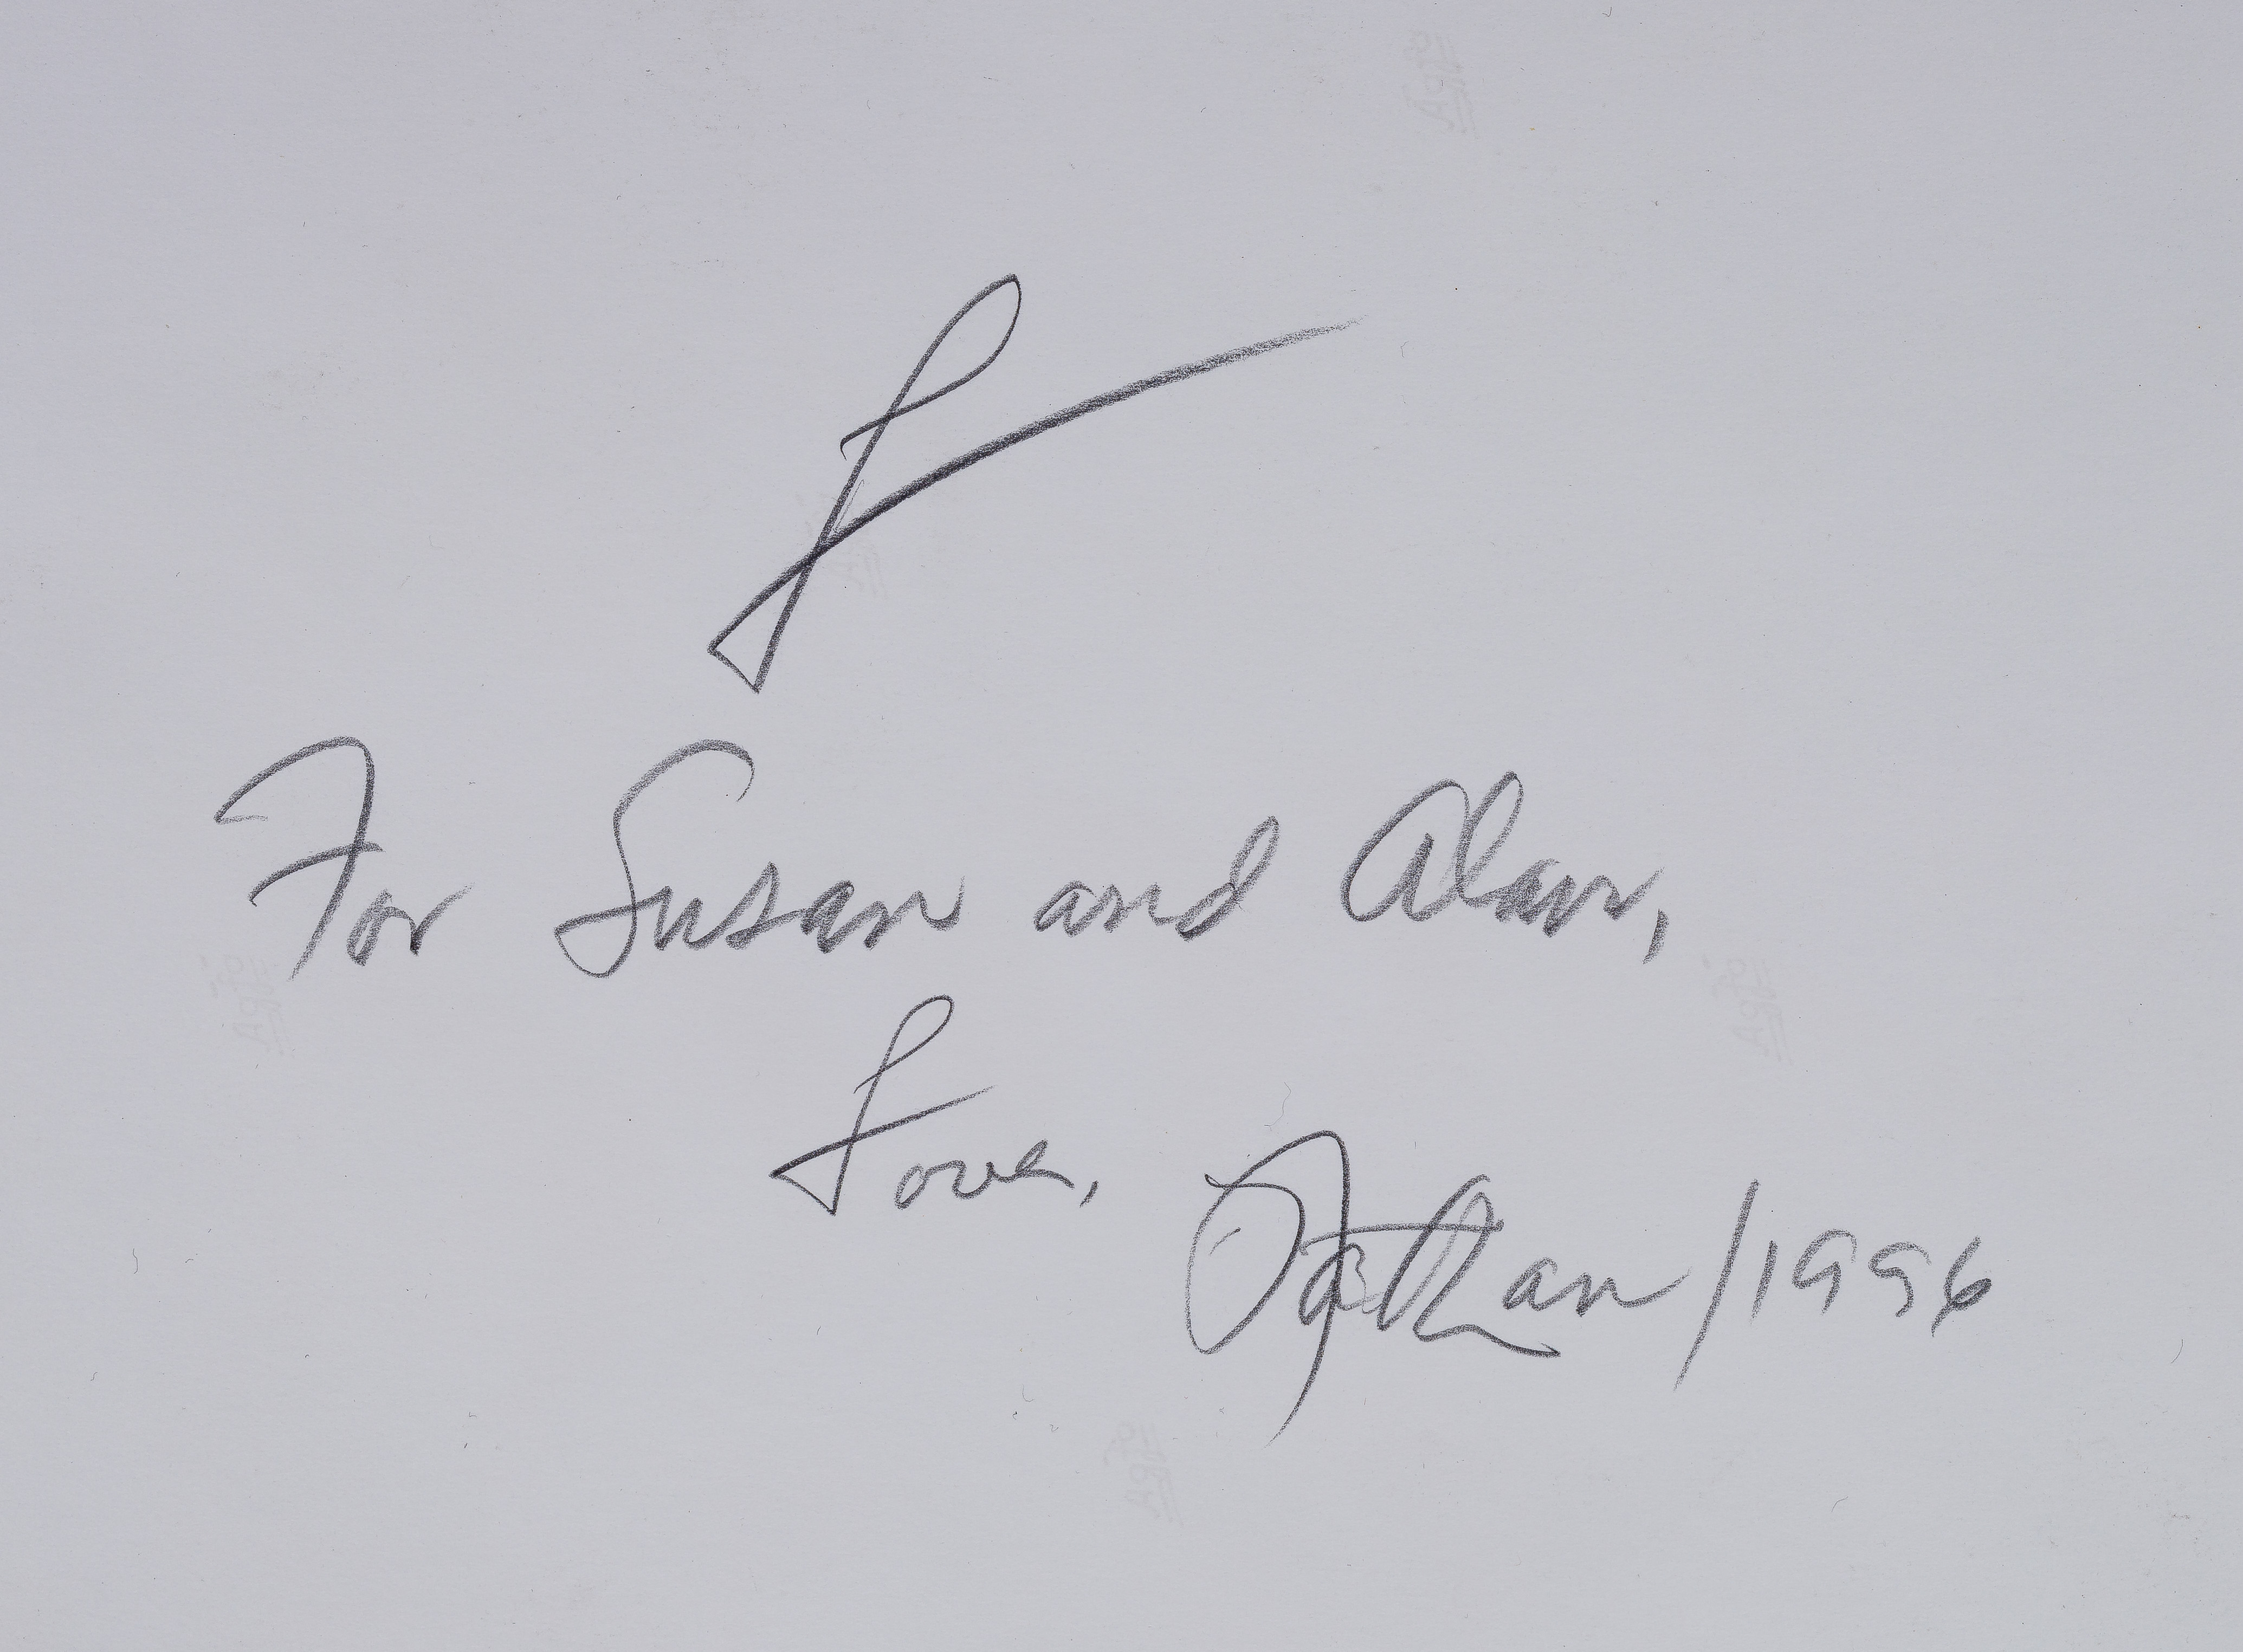 L
For Susan and Alan,
Love, Nathan/1996